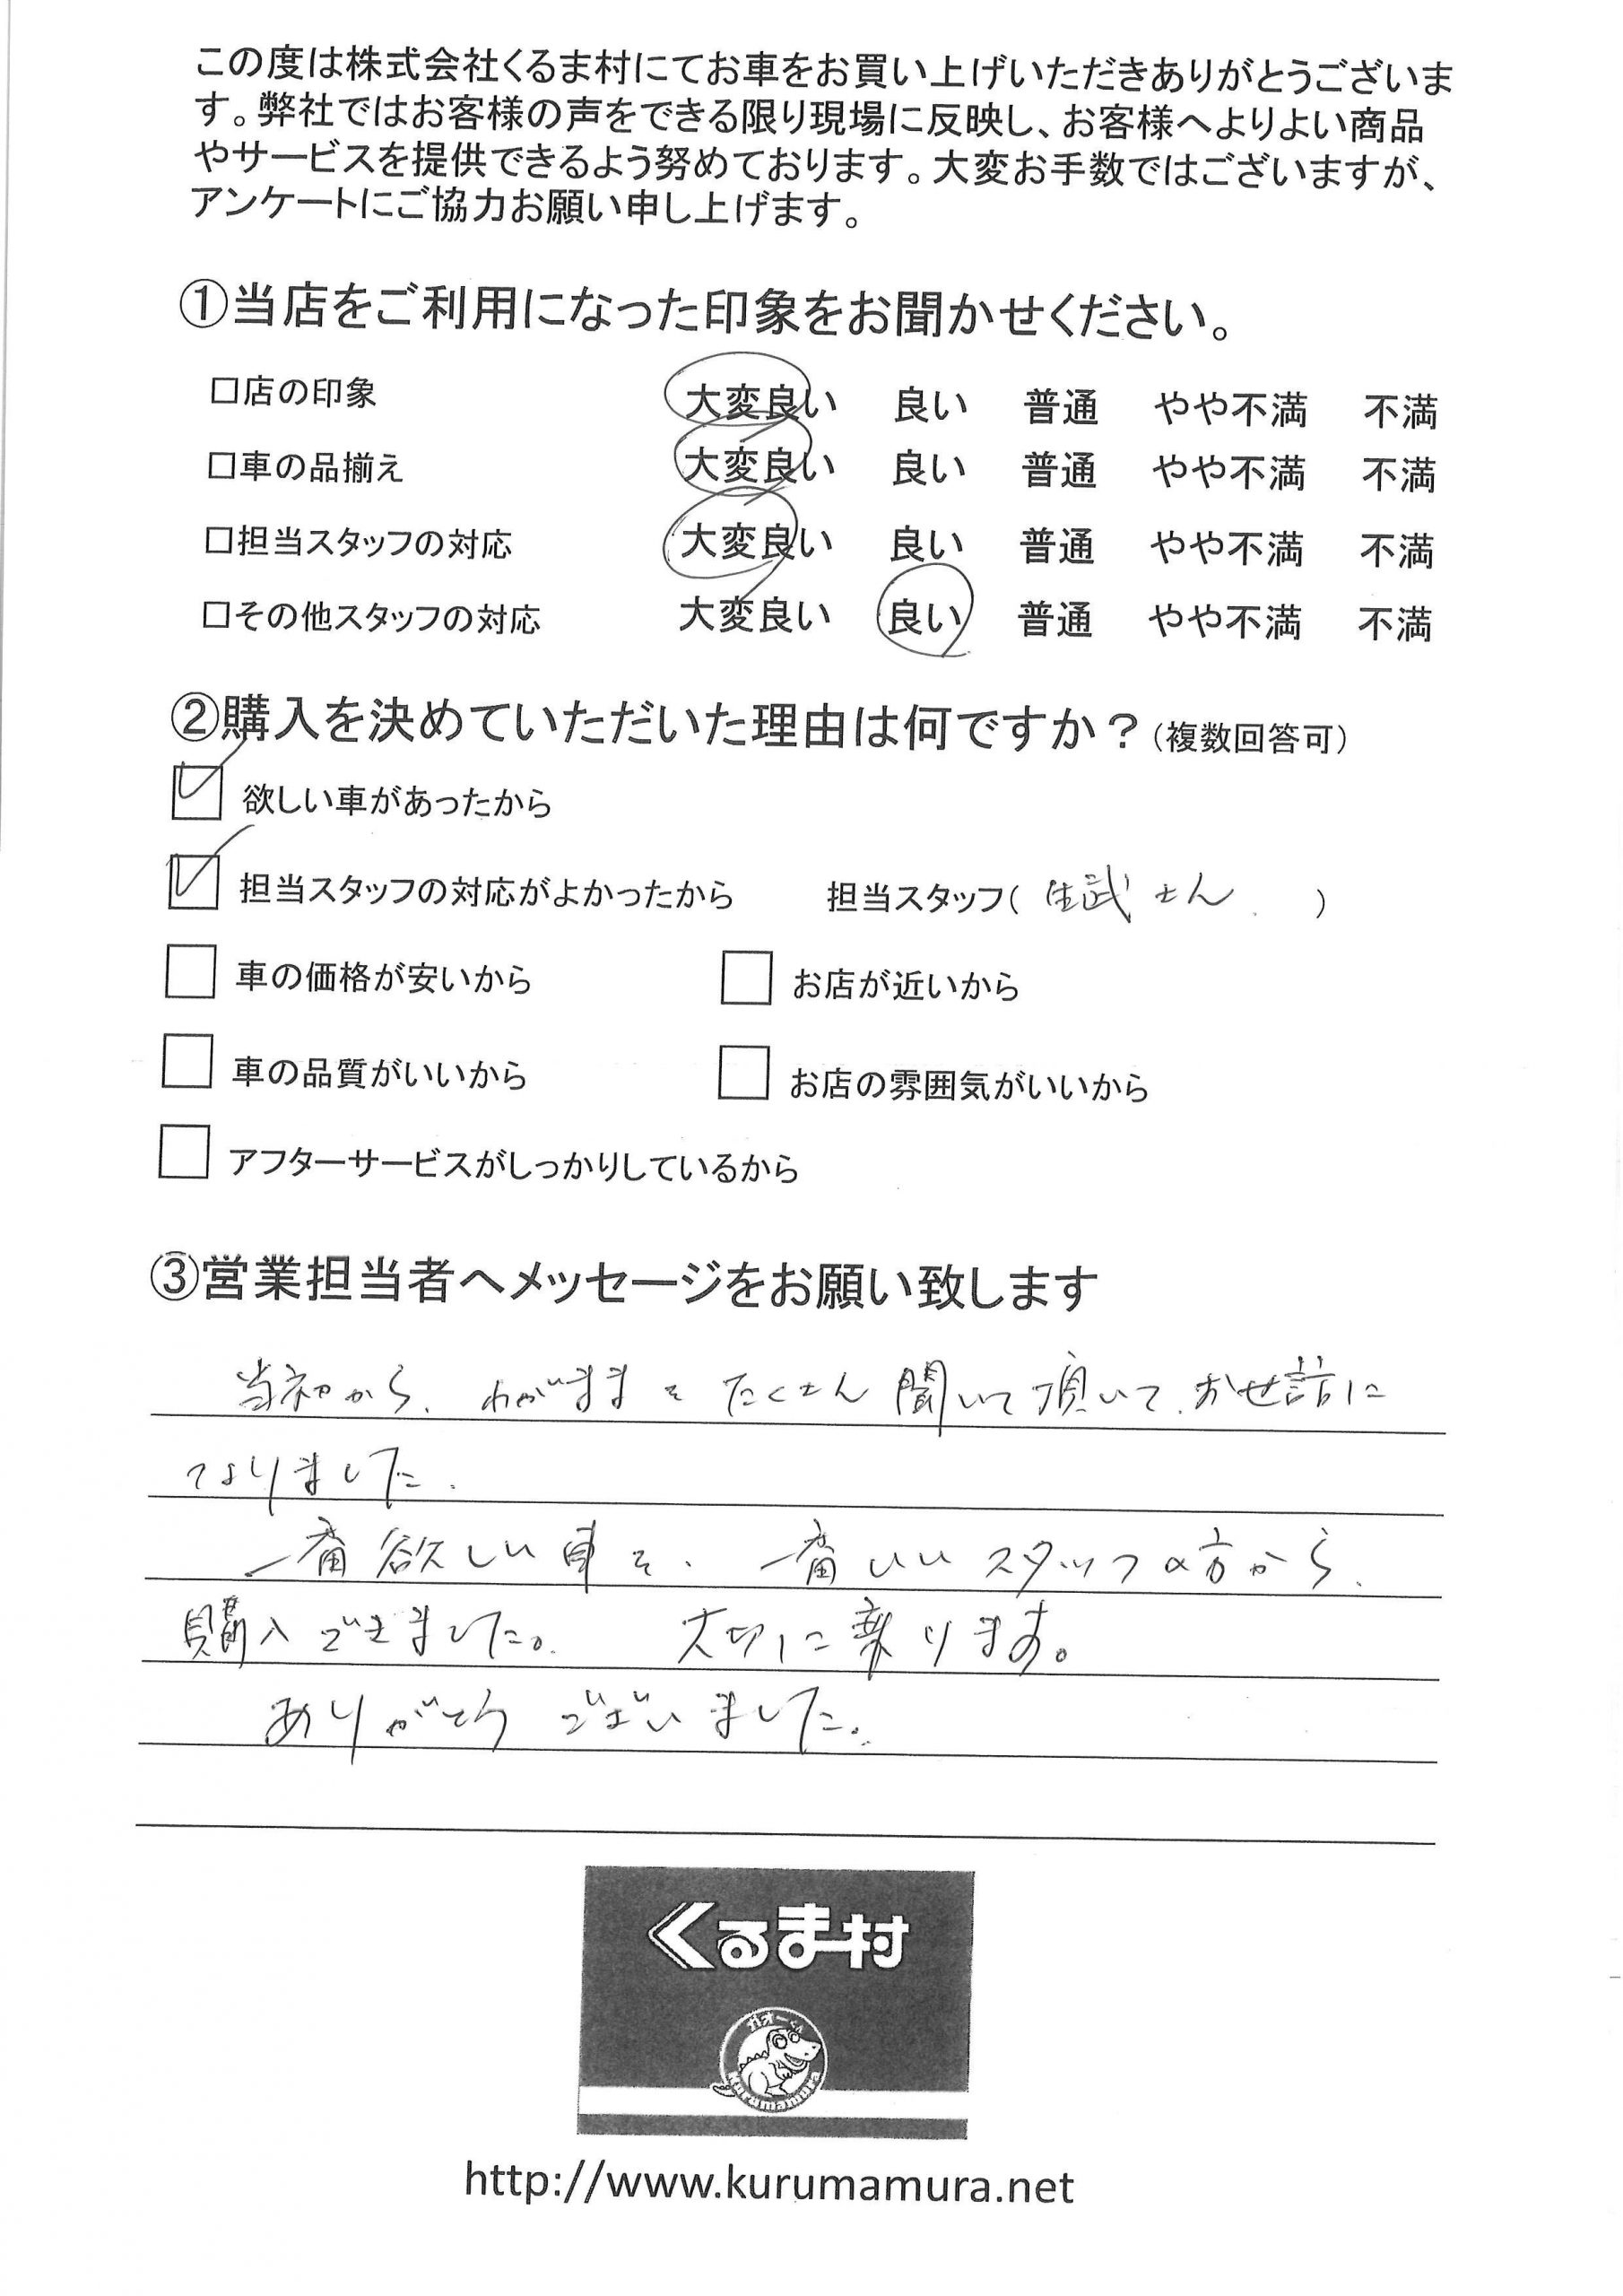 この度は株式会社くるま村にてお車をお買い上げいただきありがとうございま
す。弊社ではお客様の声をできる限り現場に反映し、お客様へよりよい商品
やサービスを提供できるよう努めております。大変お手数ではございますが、
アンケートにご協力お願い申し上げます。
①当店をご利用になった印象をお聞かせください。
□店の印象 大変良い 良い 普通 やや不満 不満
□車の品揃え 大変良い 良い 普通 やや不満 不満
□担当スタッフの対応 大変良い 良い 普通 やや不満 不満
□その他スタッフの対応 大変良い 良い 普通 やや不満 不満
②購入を決めていただいた理由は何ですか？（複数回答可）
欲しい車があったから
担当スタッフの対応がよかったから 担当スタッフ（ 生武さん ）
車の価格が安いから お店が近いから
車の品質がいいから お店の雰囲気がいいから
アフターサービスがしっかりしているから
③営業担当者へメッセージをお願い致します
当初から、わがままをたくさん聞いて頂いて、お世話に
なりました.
一番欲しい車を、一番いいスタッフの方から、
購入できました。 大切に乗ります。
ありがとうございました。
くるま村
ガオーくん
Kurumamura
http://www.kurumamura.net